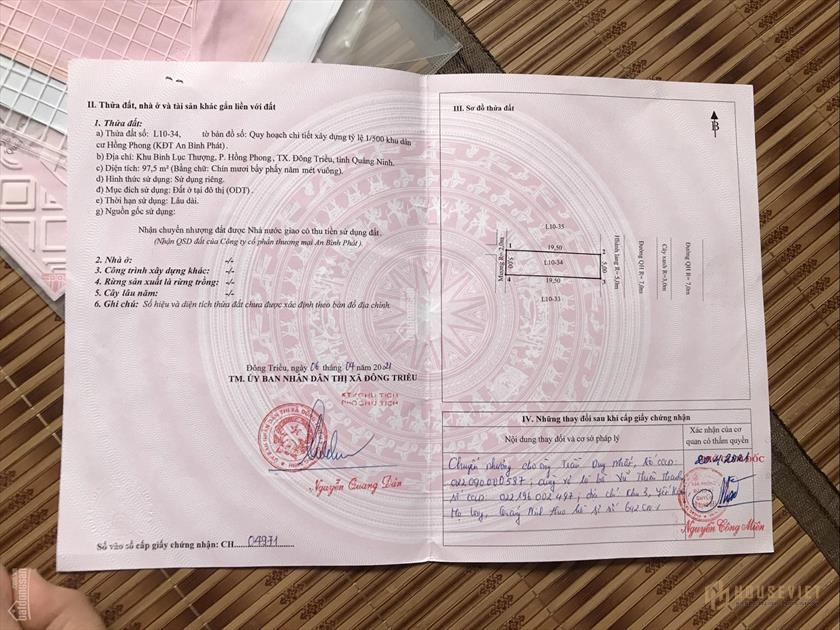 II. Thửa đất, nhà ở và tài sản khác gắn liền với đất
1. Thửa đất:
a) Thửa đất số: L10-34, tờ bản đồ số: Quy hoạch chi tiết xây dựng tỷ lệ 1/500 khu dân
cư Hồng Phong (KĐT An Bình Phát) .
b) Địa chỉ: Khu Bình Lục Thượng, P. Hồng Phong , TX. Đông Triều, tỉnh Quảng Ninh.
c) Diện tích: 97,5 m² (Bằng chữ: Chín mươi bảy phẩy năm mét vuông).
d) Hình thức sử dụng: Sử dụng riêng.
đ) Mục đích sử dụng: Đất ở tại đô thị (ODT) .
e) Thời hạn sử dụng: Lâu dài.
g) Nguồn gốc sử dụng:
Nhận chuyển nhượng đất được Nhà nước giao có thu tiền sử dụng đất .
(Nhận QSD đất của Công ty cổ phần thương mại An Bình Phát ).
2. Nhà ở: -/-
3. Công trình xây dựng khác: -/-
4. Rừng sản xuất là rừng trồng: -/-
5. Cây lâu năm: -/-
6. Ghi chú: Số hiệu và diện tích thửa đất chưa được xác định theo bản đồ địa chính.
Đông Triều, ngày 06 tháng 04 năm 2021
TM. ỦY BAN NHÂN DÂN THỊ XÃ ĐÔNG TRIỀU
KT.CHỦ TỊCH
PHÓ CHỦ TỊCH
Nguyễn Quang Dân
Số vào sổ cấp giấy chứng nhận: CH 04971
III. Sơ đồ thửa đất
B
L10-35
19,50
1
5,00
L10-34
5,00
4
19,50
L10-33
Mương R= 2,0m
Hành lang R= 5,0m
Đường QH R= 7,0m
Cây xanh R=3,0m
Đường QH R= 7,0m
IV. Những thay đổi sau khi cấp giấy chứng nhận
Nội dung thay đổi và cơ sở pháp lý
Xác nhận của cơ
quan có thẩm quyền
Chuyển nhượng cho ông Trần Duy Nhất, số CCCD:
022090000587, cùng vợ là bà Vũ Thanh
số CCCD: 022196002497, địa chỉ: Khu 3,
Hạ Long, Quảng Ninh theo hồ sơ số
Nguyễn Công Miên
HOUSEVIET
batdongsan